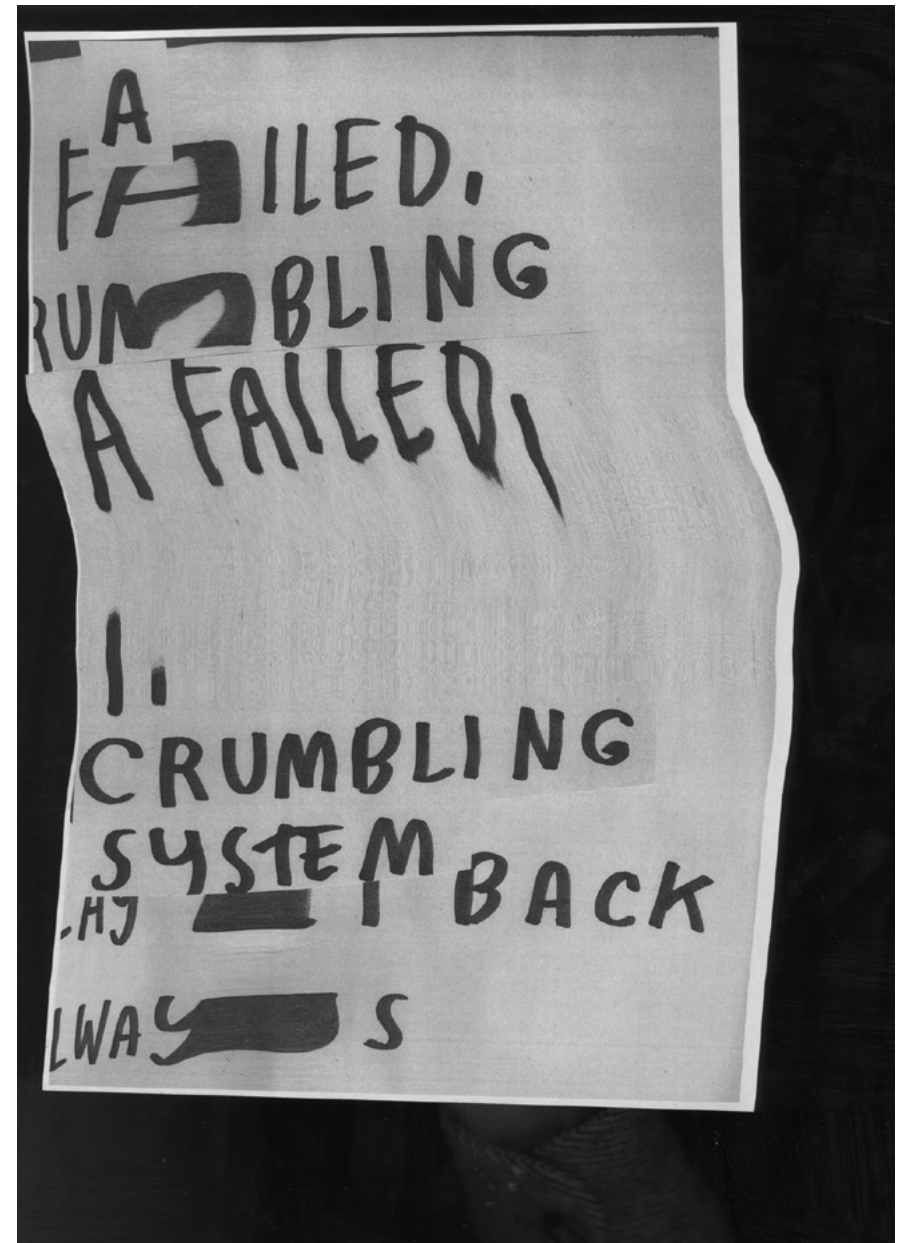 A
FAILED.
RUMBLING
A FAILED,
I.
CRUMBLING
SYSTEM
I BACK
LWAYS S